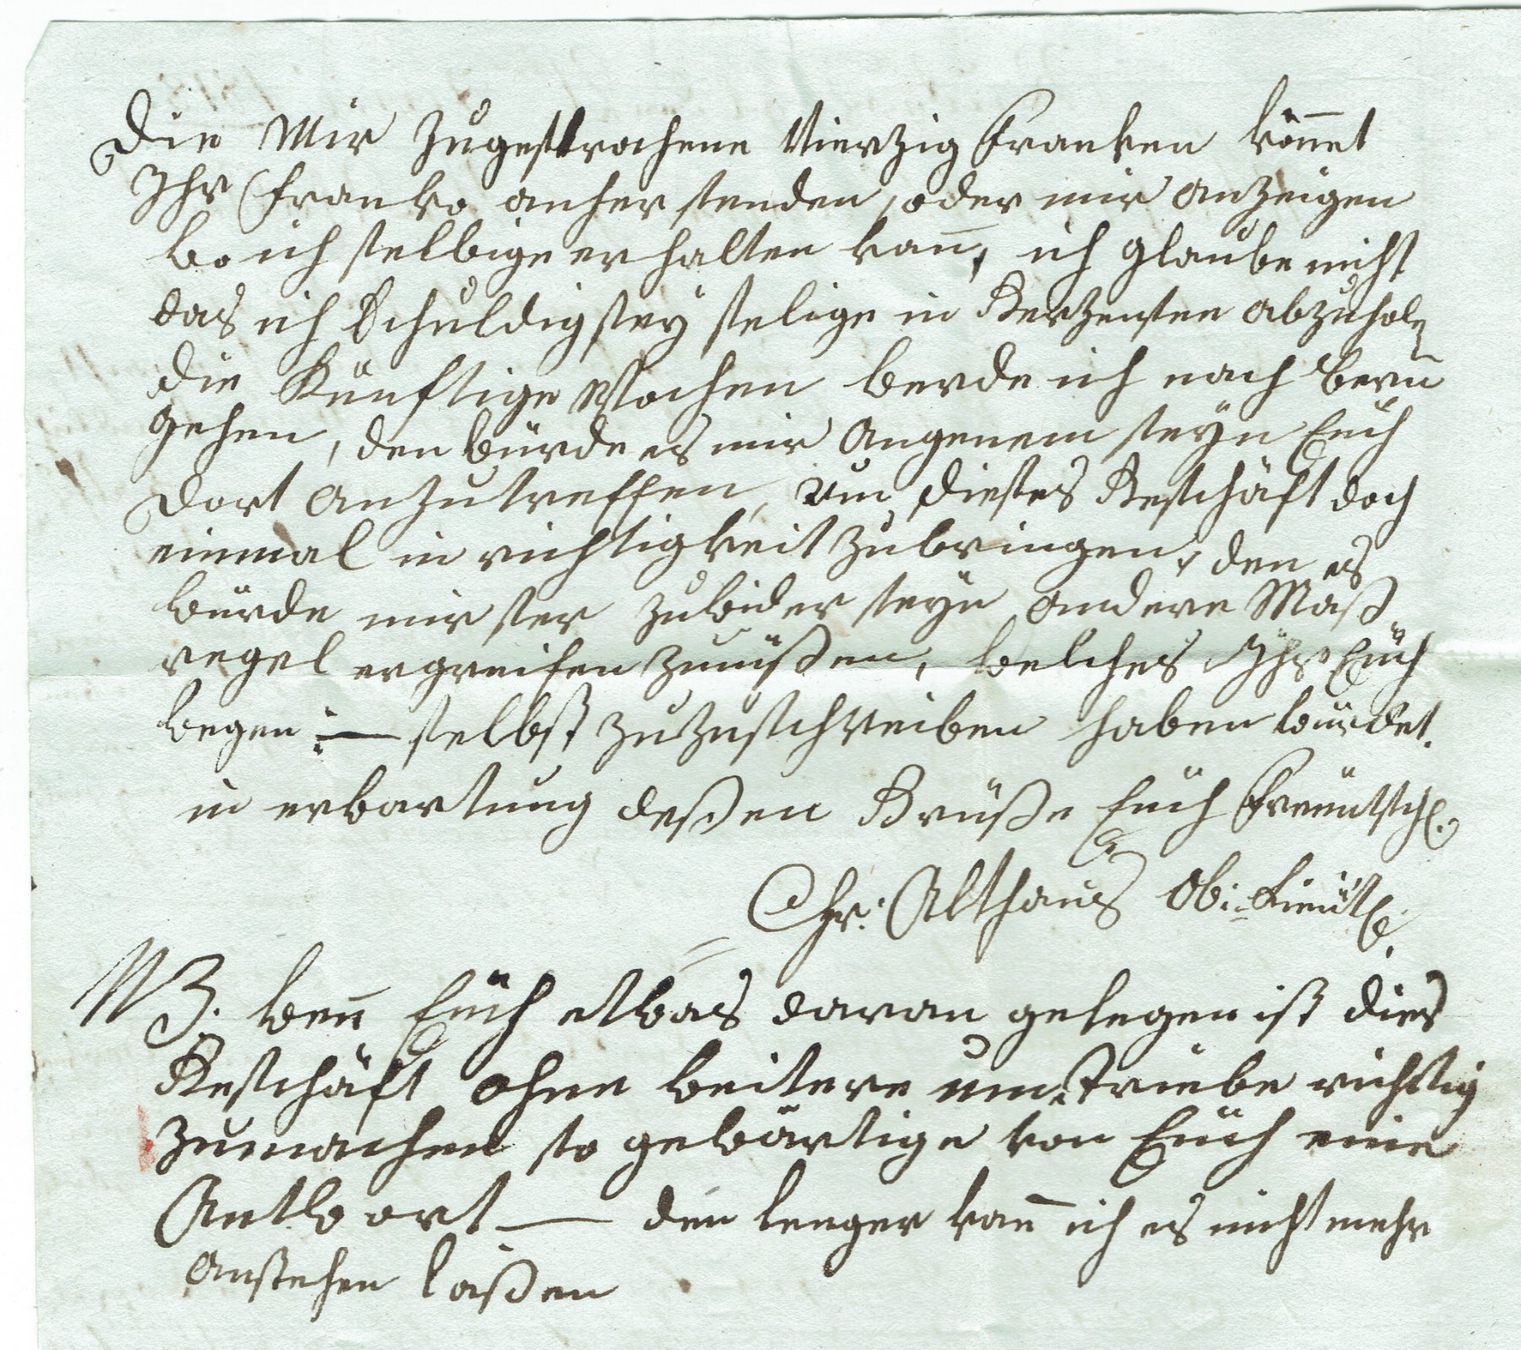 Die Mir Zugesprochene Vierzig Franken könnet
Ihr Franko anher senden, oder mir Anzeigen
wo ich selbige erhalten kann, ich glaube nicht
das ich Schuldig sey selige in Kerzersen abzuholen
die Künftige Wochen werde ich nach Bern
gehen, den würde es mir Angenem seyn Euch
dort Anzutreffen, um dieses Geschäft doch
einmal in richtigkeit zubringen, den es
würde mir ser zuwider seyn andere Maß
regel ergreifen zumüßen, welches Ihr Euch
wegen :— selbst zuzuschreiben haben würdet.
in erwartung deßen Grüße Euch Freüntsch.
Chr: Althaus Ob: Lieüt
NB. wenn Euch etwas daran gelegen ist dies
Geschäft ohne weitere umtriebe richtig
zumachen so gewärtige von Euch eine
Antwort — den lenger kann ich es nicht mehr
Anstehen laßen